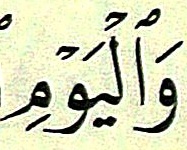 وَٱلۡيَوۡمِ